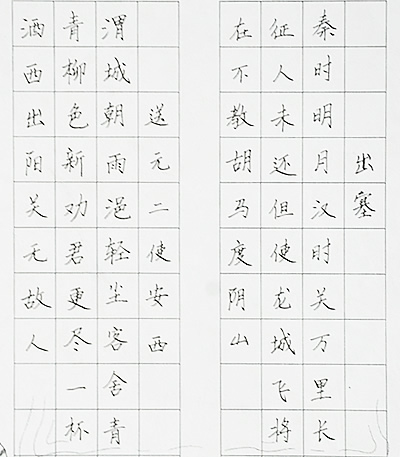 出塞
秦时明月汉时关万里长
征人未还但使龙城飞将
在不教胡马度阴山
送元二使安西
渭城朝雨浥轻尘客舍青
青柳色新劝君更尽一杯
酒西出阳关无故人